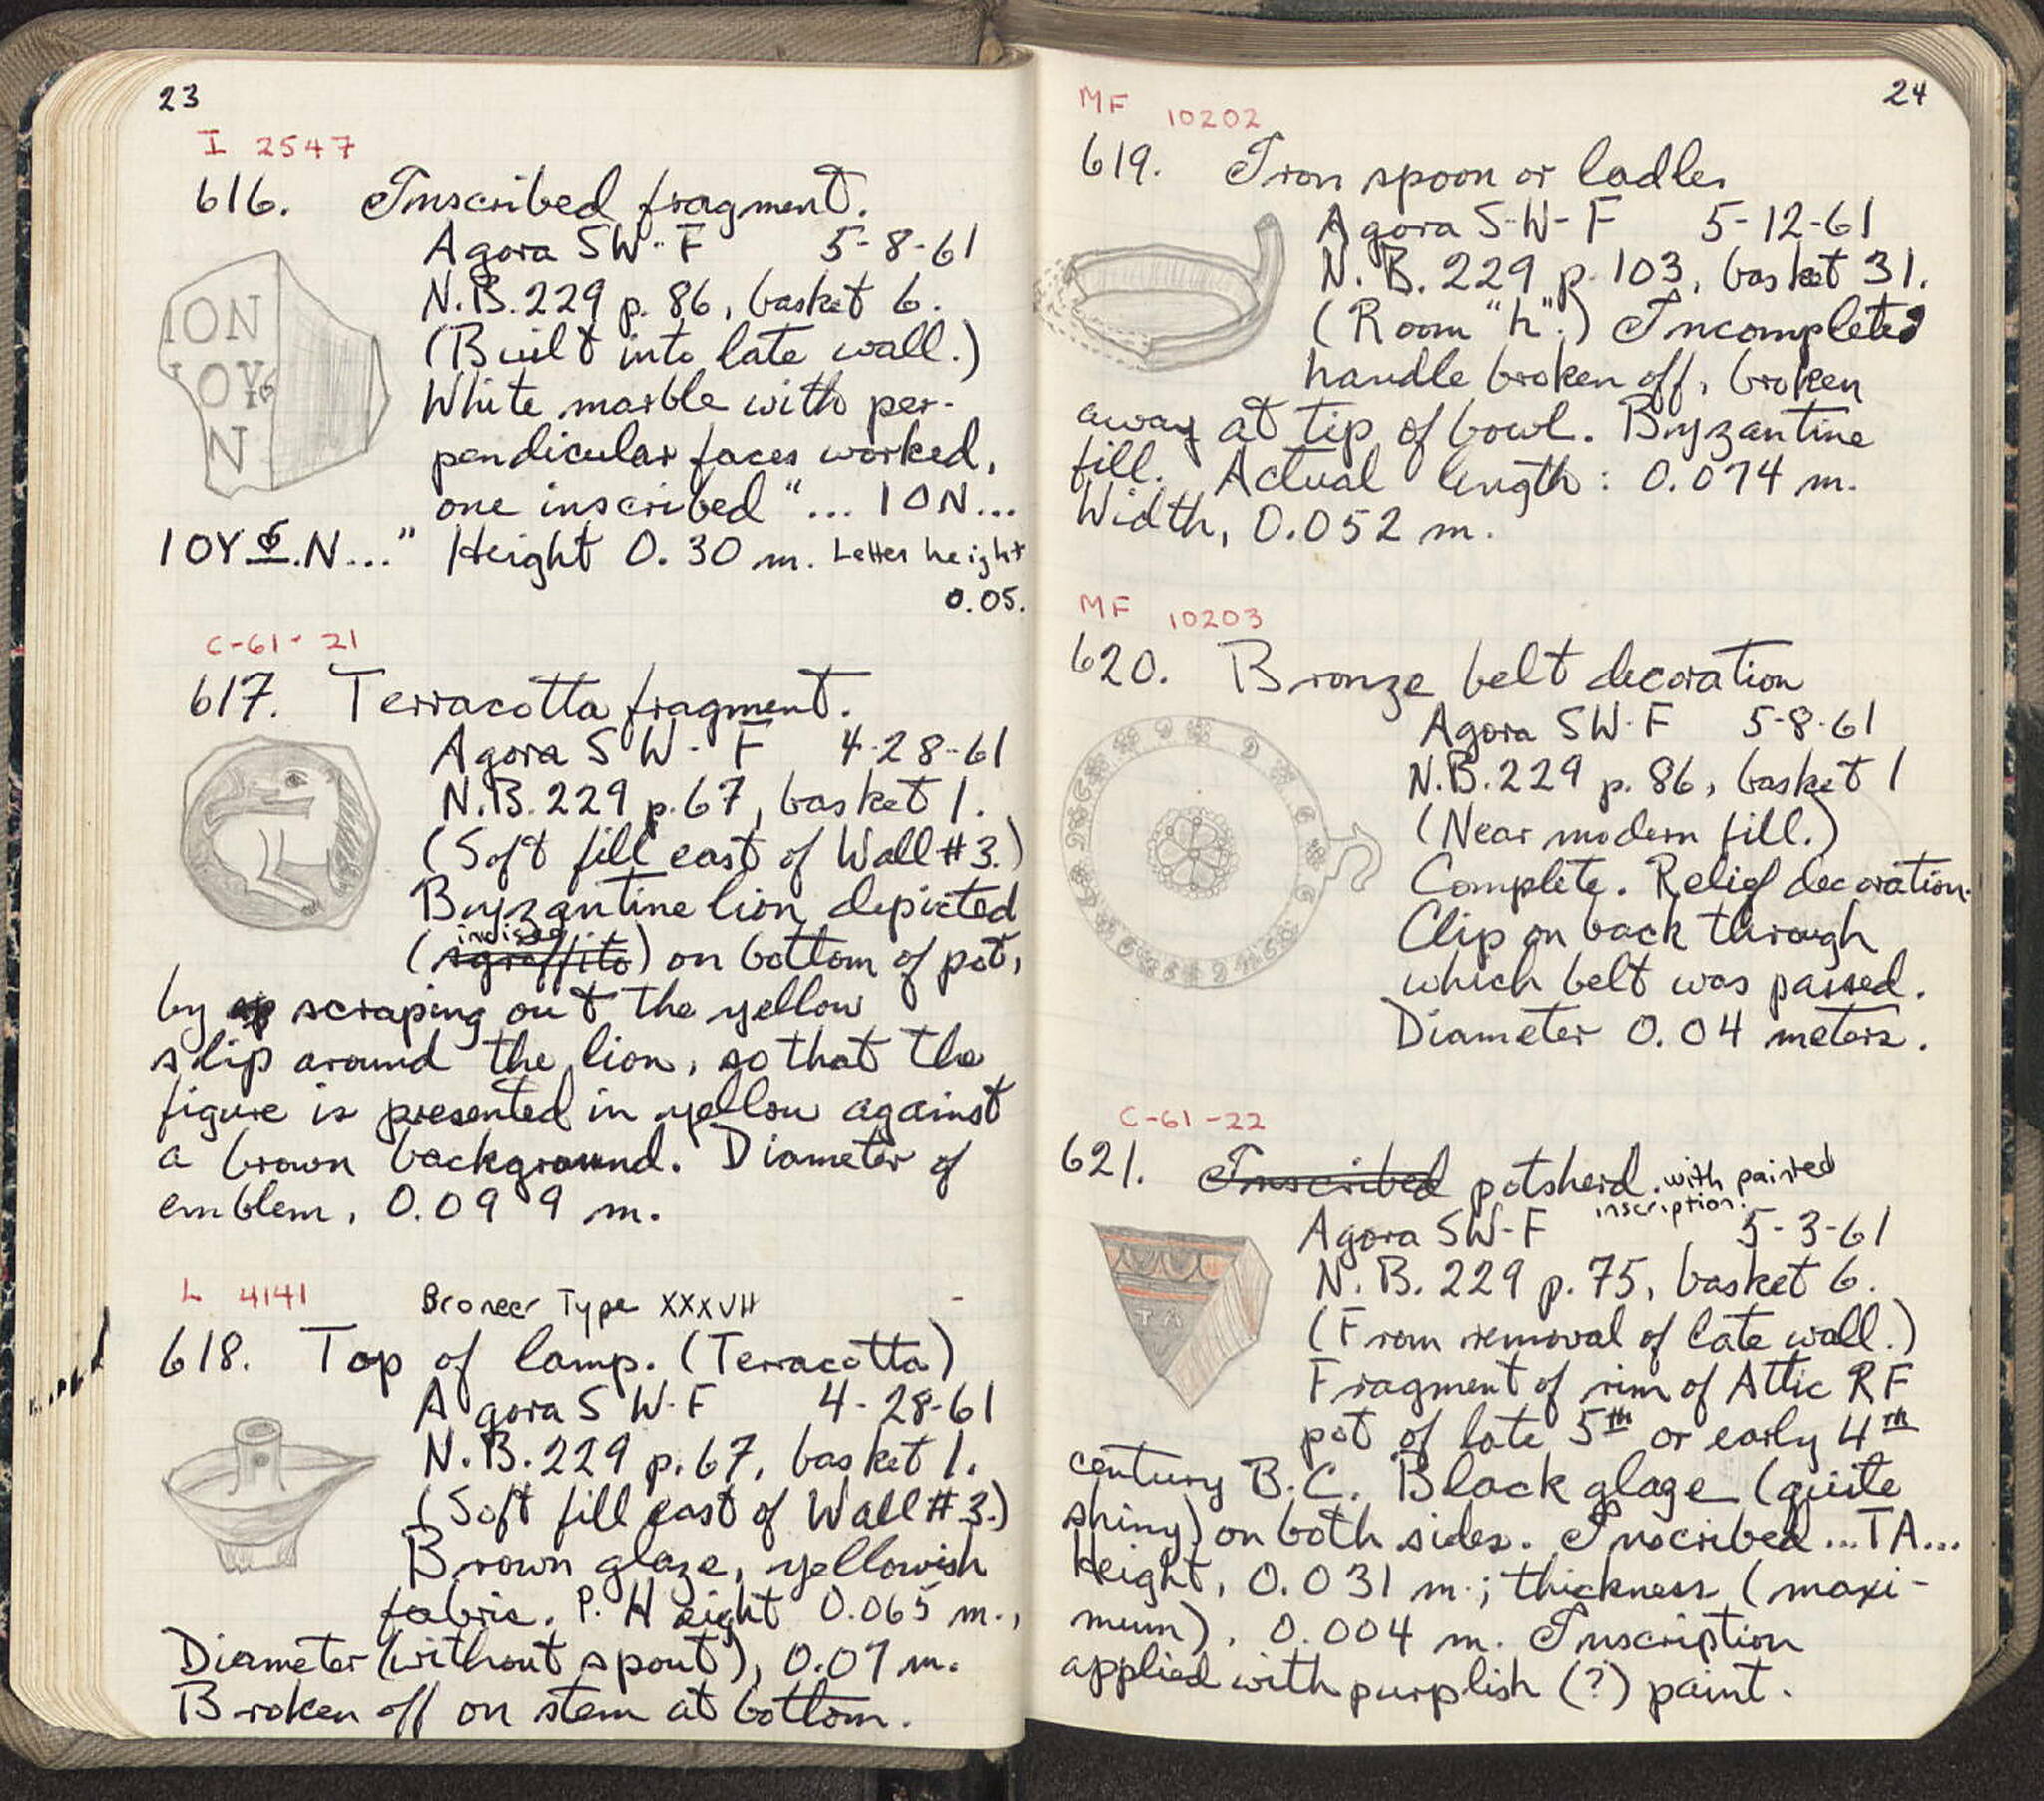 23
I 2547
616. Inscribed fragment.
Agora SW-F 5-8-61
N.B. 229 p. 86, basket 6.
(Built into late wall.)
White marble with per-
pendicular faces worked,
one inscribed "... ION...
IOY .N..." Height 0.30 m. Letter height
0.05.
ION
IOY
N
C-61-21
617. Terracotta fragment.
Agora SW-F 4-28-61
N.B. 229 p. 67, basket 1.
(Soft fill east of Wall #3.)
Byzantine lion depicted
incised
(sgraffito) on bottom of pot,
by scraping out the yellow
slip around the lion, so that the
figure is presented in yellow against
a brown background. Diameter of
emblem, 0.099 m.
L 4141 Broneer Type XXXVII
618. Top of lamp. (Terracotta)
Agora SW-F 4-28-61
N.B. 229 p. 67, basket 1.
(Soft fill east of Wall #3.)
Brown glaze, yellowish
fabric. P. Height 0.065 m.,
Diameter (without spout), 0.07 m.
Broken off on stem at bottom.
24
MF 10202
619. Iron spoon or ladle.
Agora S-W-F 5-12-61
N.B. 229 p. 103, basket 31.
(Room "h".) Incomplete,
handle broken off, broken
away at tip of bowl. Byzantine
fill. Actual length: 0.074 m.
Width, 0.052 m.
MF 10203
620. Bronze belt decoration
Agora SW-F 5-8-61
N.B. 229 p. 86, basket 1
(Near modern fill.)
Complete. Relief decoration.
Clip on back through
which belt was passed.
Diameter 0.04 meters.
C-61-22
621. Inscribed potsherd. with painted
inscription.
Agora SW-F 5-3-61
N.B. 229 p. 75, basket 6.
(From removal of late wall.)
Fragment of rim of Attic RF
pot of late 5th or early 4th
century B.C. Black glaze (quite
shiny) on both sides. Inscribed ...TA...
Height, 0.031 m.; thickness (maxi-
mum), 0.004 m. Inscription
applied with purplish (?) paint.
TA